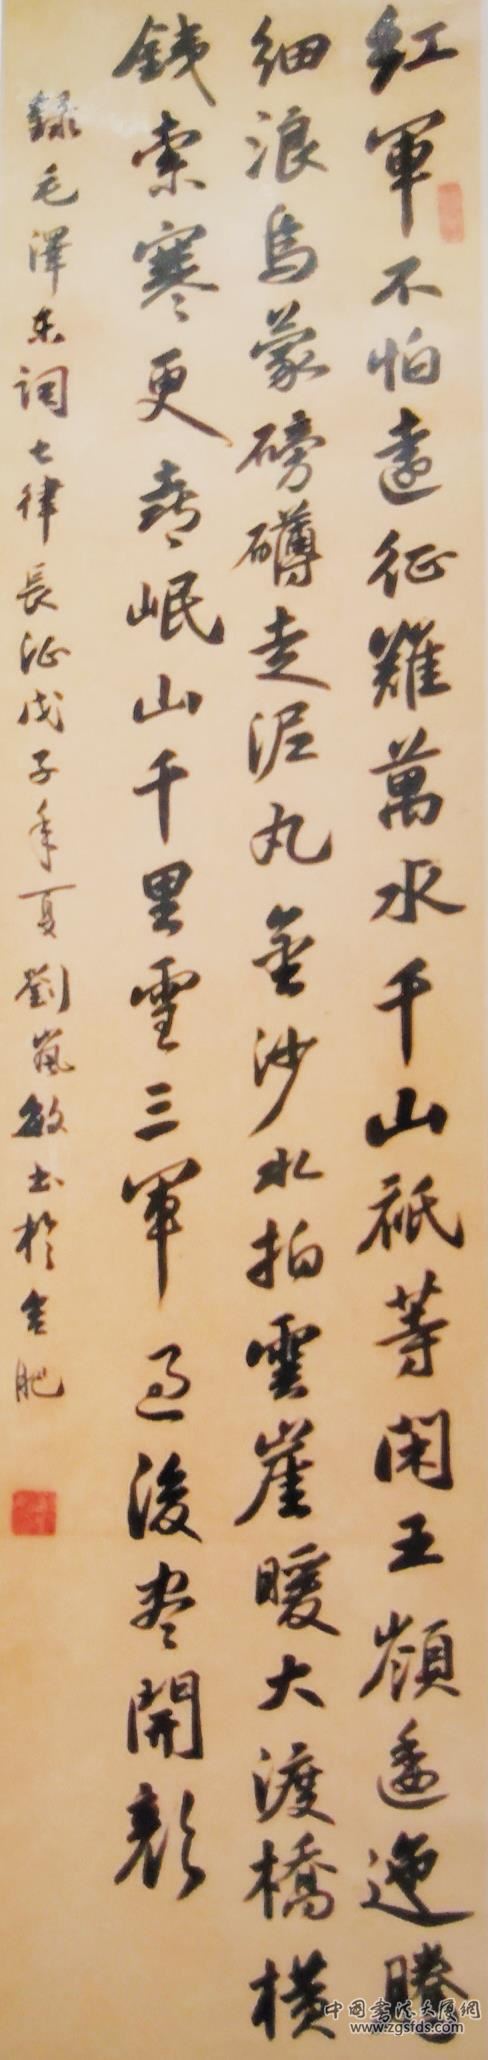 紅軍不怕遠征難萬水千山祇等閑五嶺逶迤騰
細浪烏蒙磅礴走泥丸金沙水拍雲崖暖大渡橋橫
鐵索寒更喜岷山千里雪三軍過後盡開顏
錄毛澤東詞七律長征戊子年夏劉嵐敏書於合肥
中國書法大廈網
www.zgsfds.com